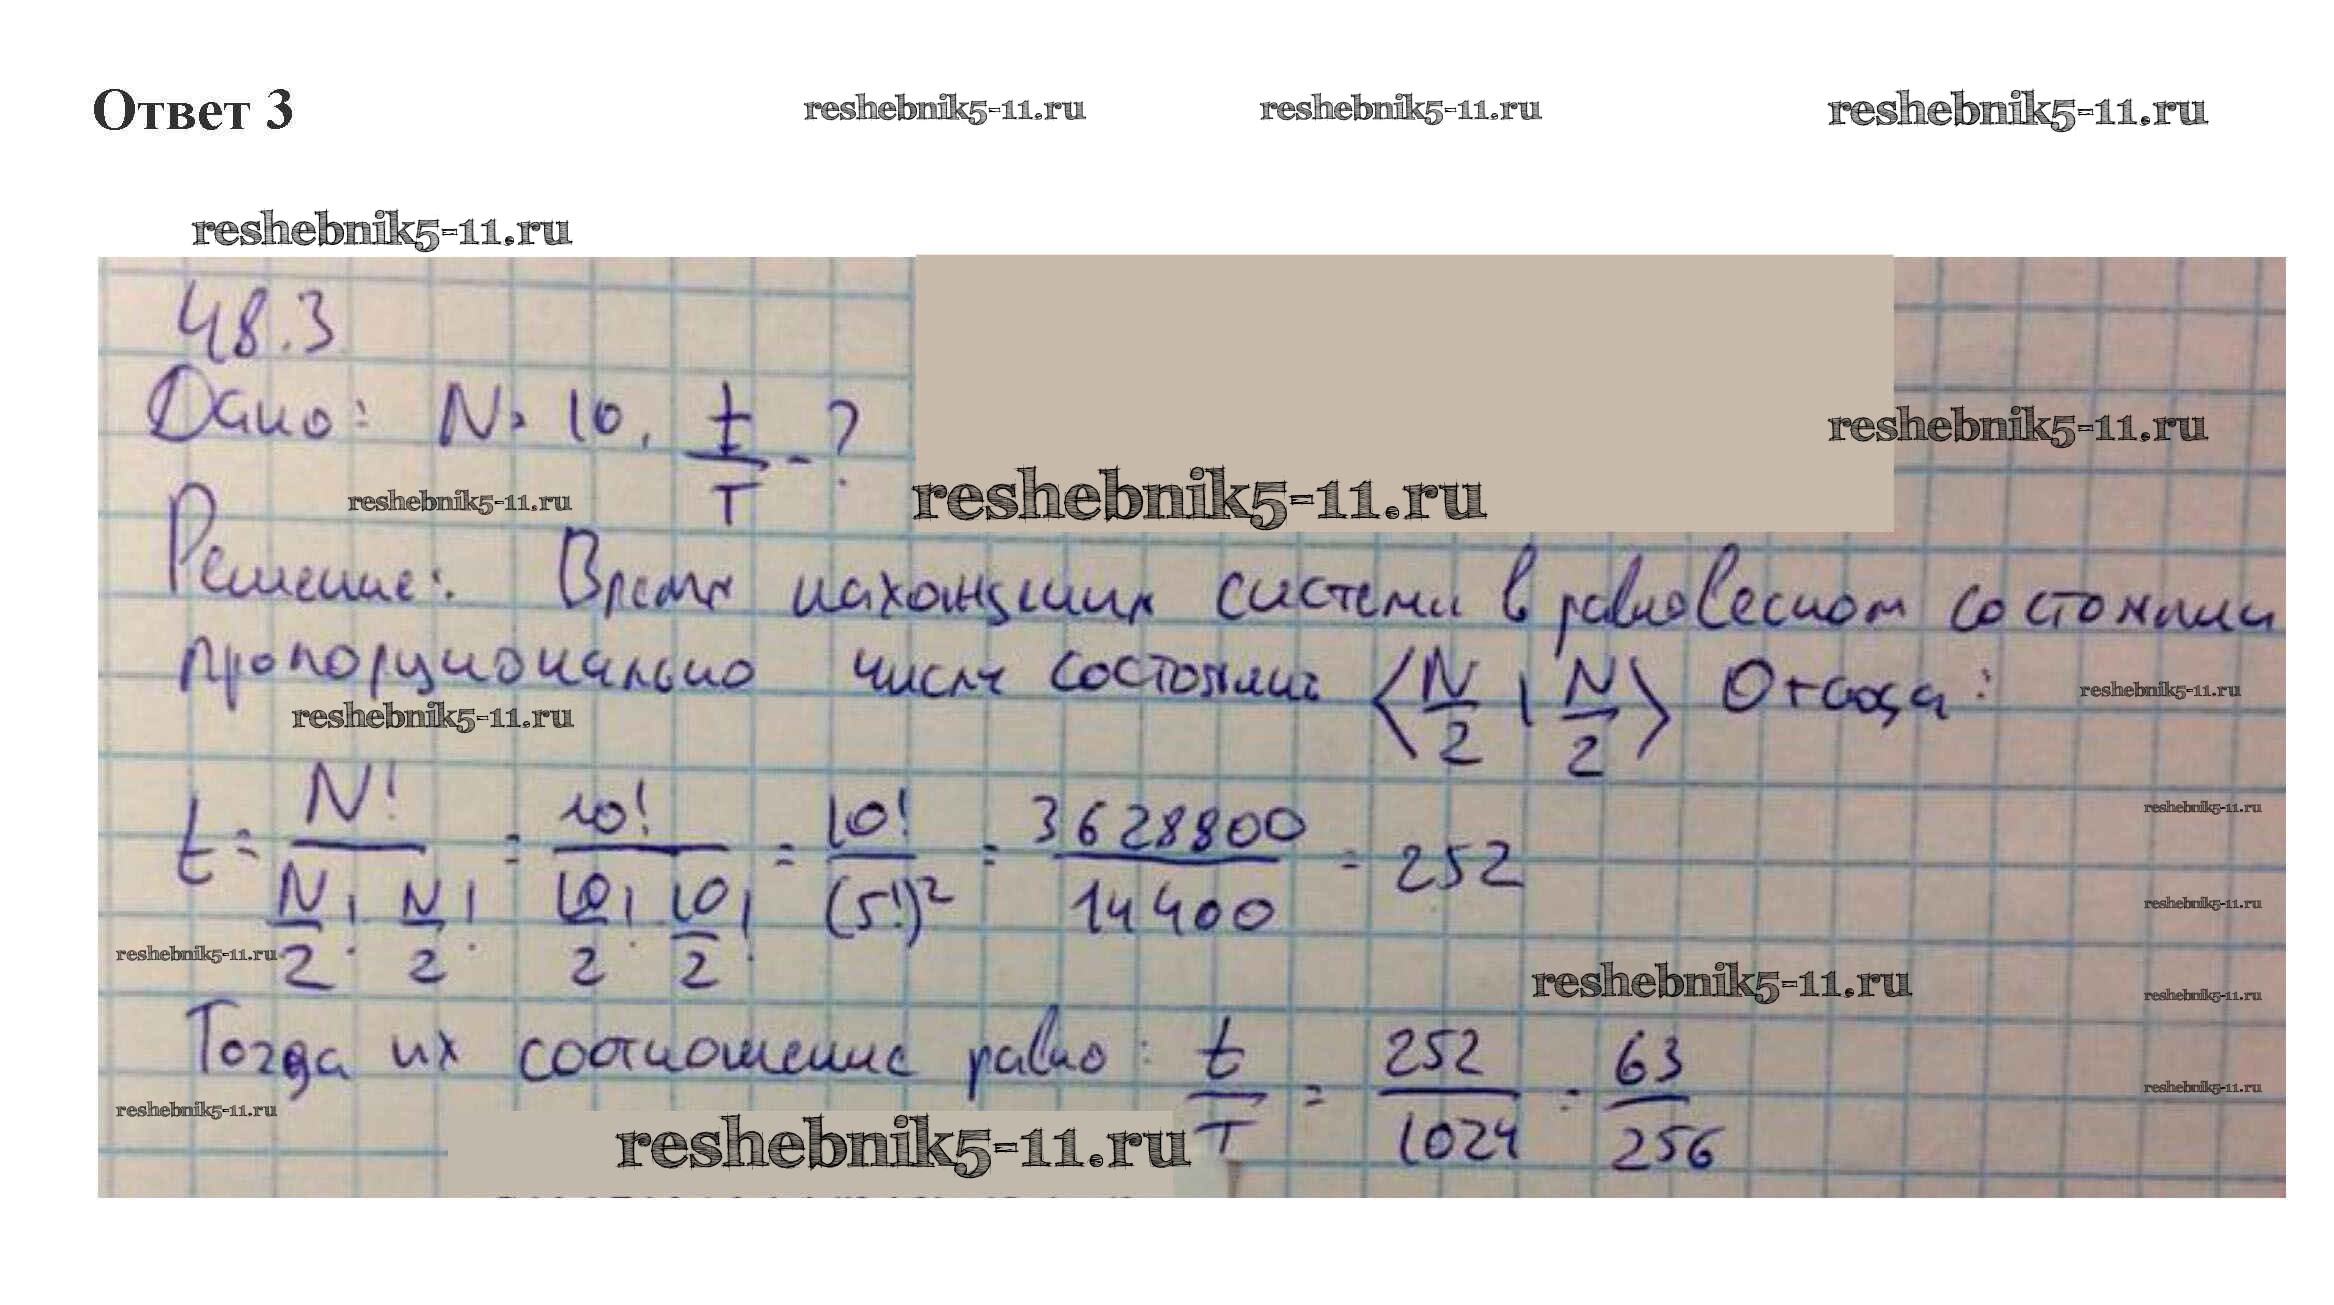 Ответ 3 reshebnik5-11.ru reshebnik5-11.ru reshebnik5-11.ru
reshebnik5-11.ru
48.3
Дано: N = 10, t/T - ?
reshebnik5-11.ru
reshebnik5-11.ru reshebnik5-11.ru
Решение: Время нахождения системы в равновесном состоянии
пропорционально числу состояний ⟨N/2 | N/2⟩ Отсюда:
reshebnik5-11.ru
reshebnik5-11.ru
reshebnik5-11.ru
t = N!/(N/2! N/2!) = 10!/(10/2! 10/2!) = 10!/(5!)² = 3628800/14400 = 252
reshebnik5-11.ru
reshebnik5-11.ru
reshebnik5-11.ru
reshebnik5-11.ru
Тогда их соотношение равно: t/T = 252/1024 = 63/256
reshebnik5-11.ru
reshebnik5-11.ru
reshebnik5-11.ru